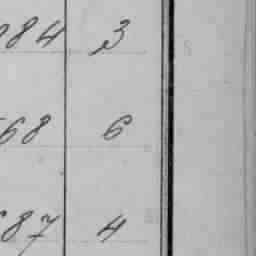 84 3
68 6
87 4